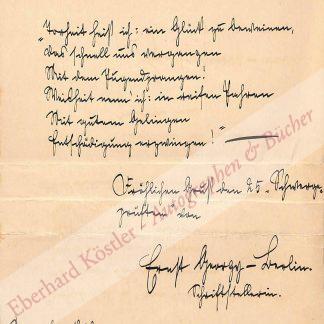 "Torheit heiß ich: ein Glück zu beweinen,
Das schnell uns vergangen
Mit dem Jugendprangen.
Weisheit nenn' ich: in reifen Jahren
Mit gutem Gelingen
Entschädigung erzwingen!"
Fröhlichen Gruß den 25. Schwerge-
prüften von
Ernst Georgy - Berlin.
Schriftstellerin.
Eberhard Köstler - Autographen & Bücher